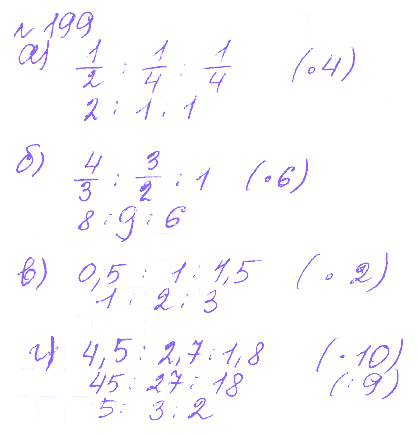 №199
а) 1/2 : 1/4 : 1/4 (·4)
2 : 1 : 1
б) 4/3 : 3/2 : 1 (·6)
8 : 9 : 6
в) 0,5 : 1 : 1,5 (·2)
1 : 2 : 3
г) 4,5 : 2,7 : 1,8 (·10)
45 : 27 : 18 (:9)
5 : 3 : 2